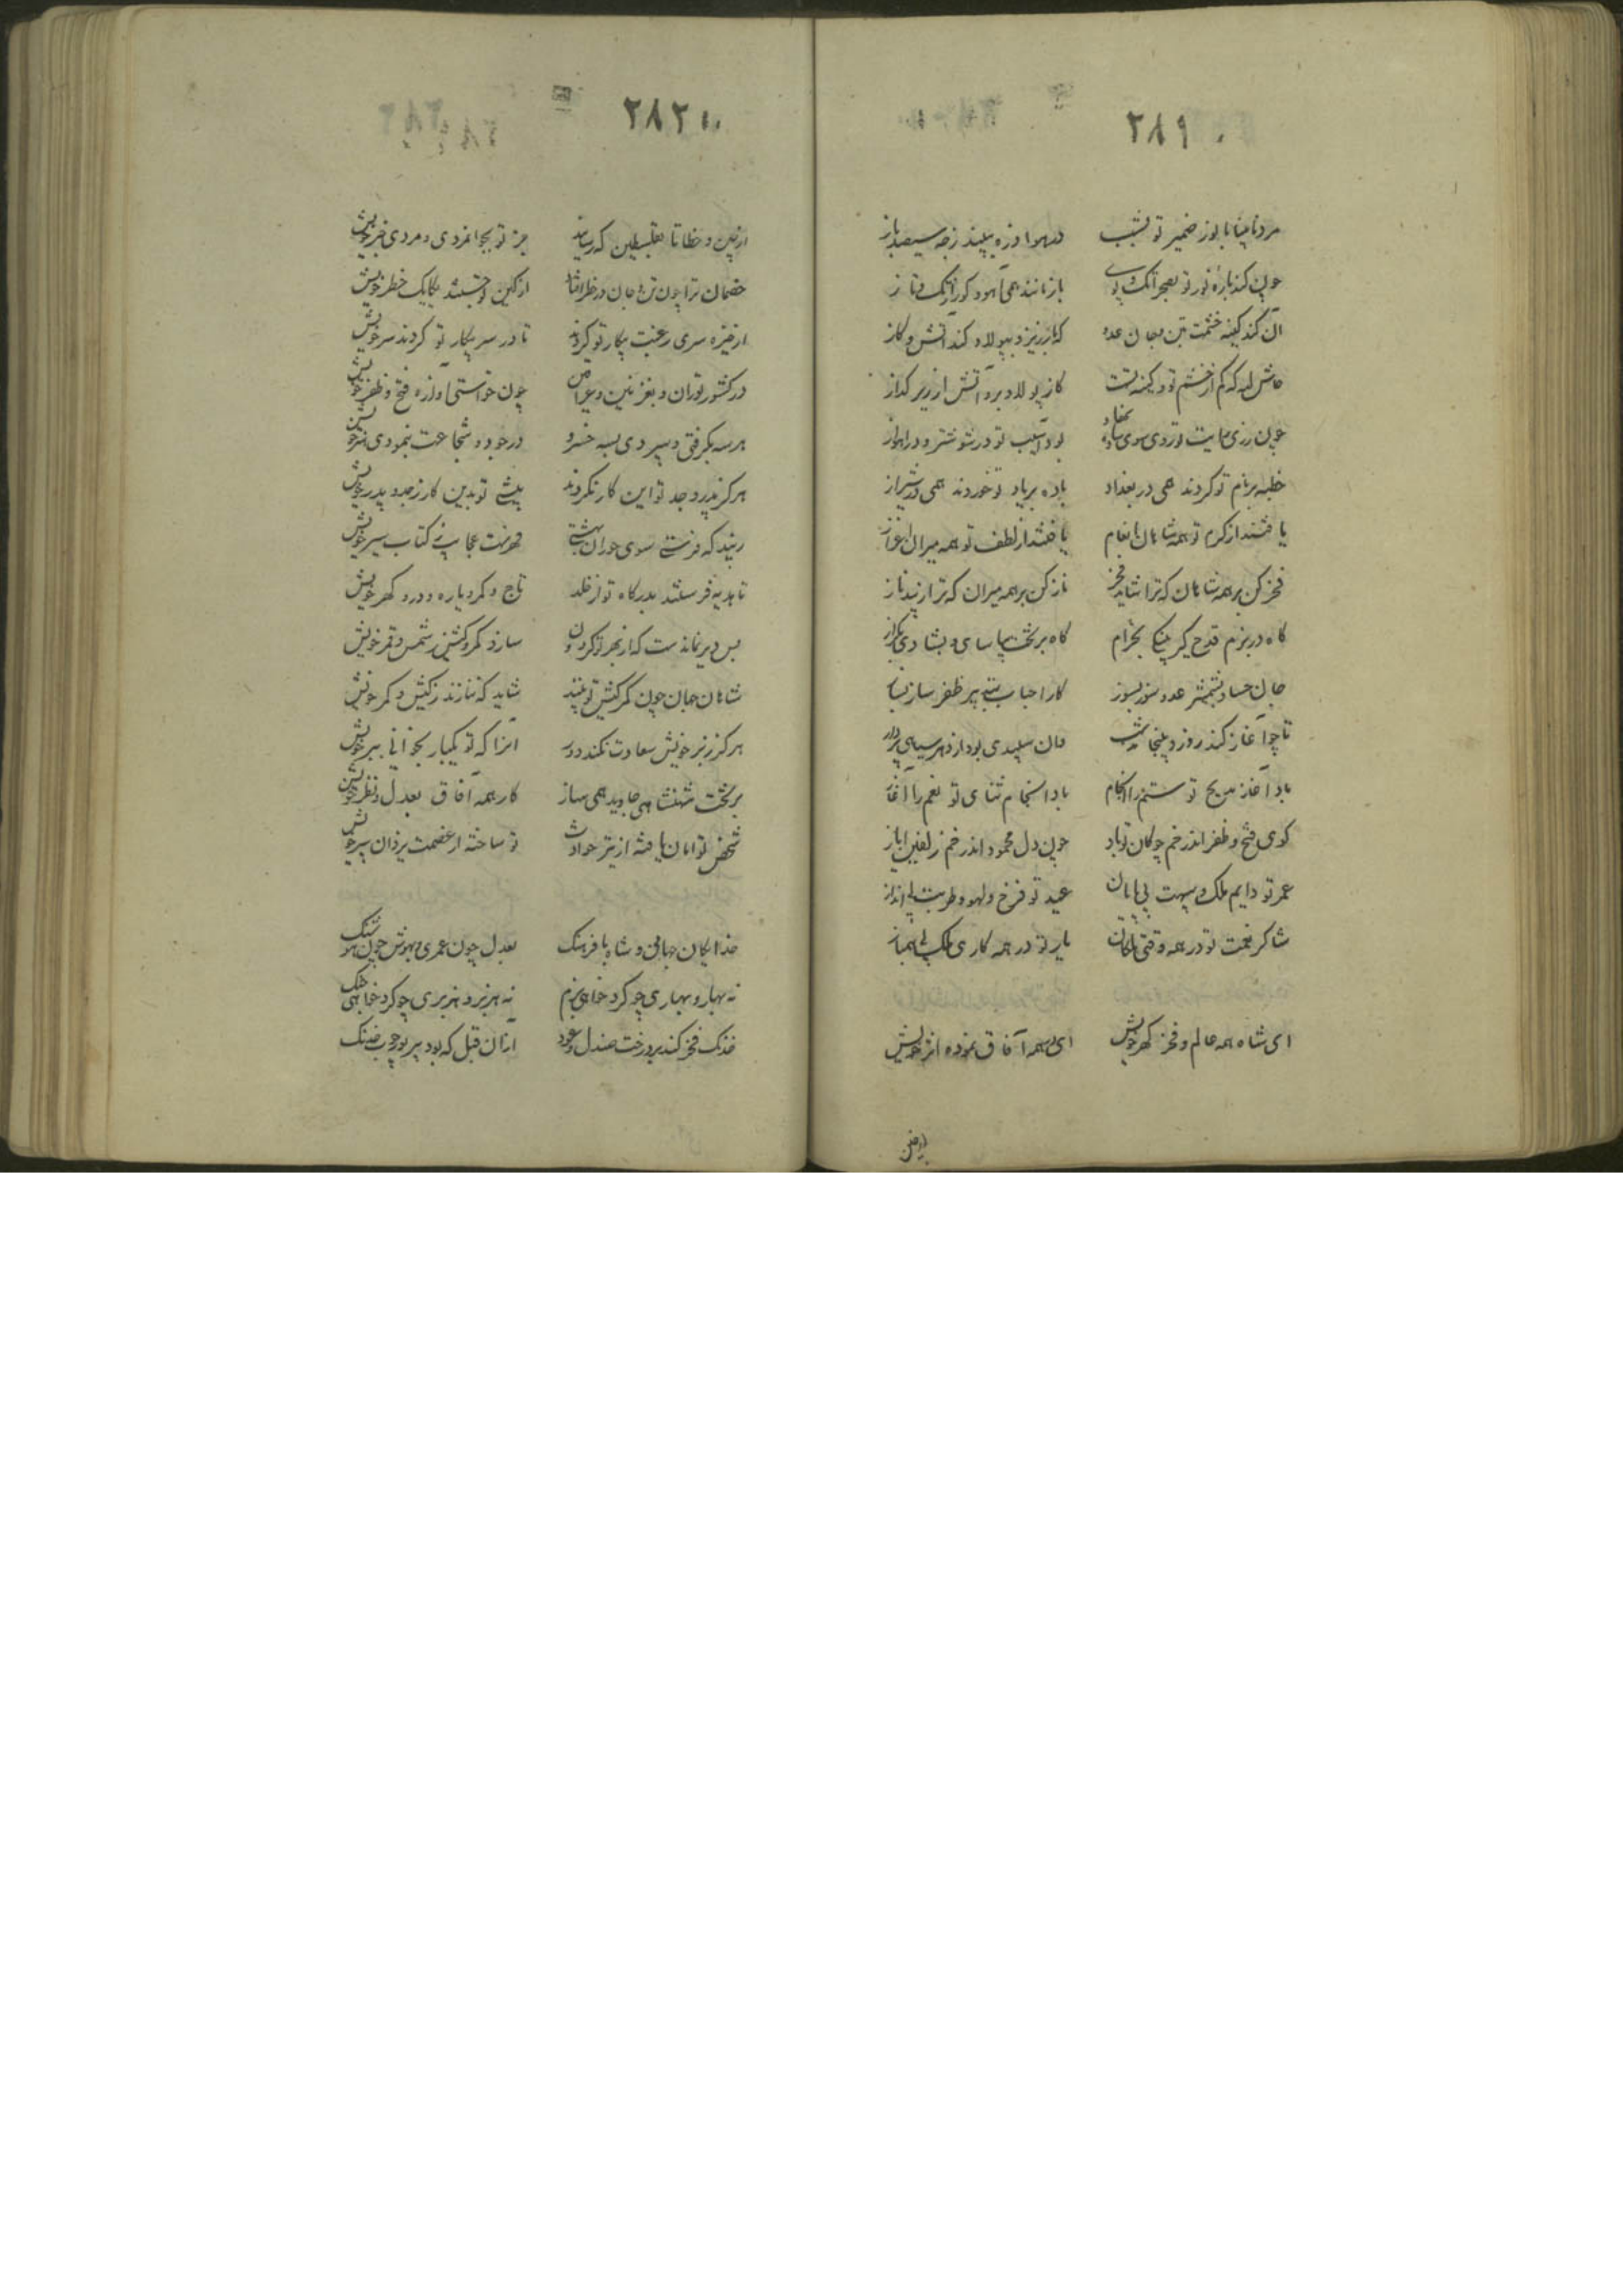 ۲۸۹
مرد نابینا با نور ضمیر تو بشب در هوا ذره ببیند زچه سیصد باز
چون کند باره نور تو بصحرا تک و پوی باز مانند همی آهو و کور از تک و تاز
آن کند کینه خشمت بتن و جان عدو که بارزیز و بپولاد کند آتش و کاز
حاش لله که کم از خشم تو و کینه تست کاز پولاد بر و آتش ارزیر کداز
چون زنی رایت نوروی سوی بود آسیب تو در شوشتر و در اهواز
خطبه بر نام تو کردند همی در بغداد باده بر یاد تو خوردند همی در شیراز
یافتند از کرم تو همه شاهان انعام یافتند از لطف تو همه میران اعزاز
فخر کن بر همه شاهان که ترا شاید فخر ناز کن بر همه میران که ترا زیبد ناز
گاه در بزم قدح گیر بخرام گاه بر تخت بیاسای و بشادی بکراز
جان حساد بشمشیر عدو سوز بسوز کار احباب بتدبیر ظفر ساز بساز
تا چو آغاز کند روز و بیان سپیدی بود از دهر سیاهی پرداز
باد آغاز مدیح تو ستم را انجام باد انجام ثنای تو نعم را آغاز
کوی فتح و ظفر اندر خم چوکان تو باد چون دل محمود اندر خم زلفین ایاز
عمر تو دایم ملک و سپهت بی پایان عید تو فرخ و لهو و طربت بی انداز
شاکر نعمت تو در همه وقتی یار تو در همه کاری ملک بی انباز
ای شاه همه عالم و فخر کهر خویش ای بهمه آفاق نموده اثر خویش
۲۸۲
از چین و خطا تا بفلسطین که رسانید جز تو بجوانمردی و مردی خبر خویش
خصمان ترا چون تن و جان در خطر افتاد از کین تو جستند یکایک خطر خویش
از خیره سری رغبت پیکار تو کردند تا در سر پیکار تو کردند سر خویش
در کشور توران و بغزنین و عراق چون خواستی آوازه فتح و ظفر خویش
هر سه بکرفتی و سپردی بسه خسرو در جود و شجاعت بنمودی هنر خویش
هرکز پدر و جد تو این کار نکردند بیشی تو بدین کار زجد و پدر خویش
زیبد که فرستی سوی حوران بهشتی فهرست عجایب زکتاب سیر خویش
تا هدیه فرستند بدرکاه تو از خلد تاج و کمر و یاره و در و کهر خویش
بس دیر نماندست که از بهر تو کردون سازد کمر و کشتی زشمس و قمر خویش
شاهان جهان چون کمر کشتی تو بینند شاید که ننازند زکشتی و کمر خویش
هرکز زبر خویش سعادت نکند دور آنرا که تو یکبار بخوانی ببر خویش
بر تخت شهنشاهی جاوید همی ساز کار همه آفاق بعدل و نظر خویش
شخص تو امان یافته از تیر حوادث تو ساخته از عصمت یزدان سپر خویش
خدایکان جهانی و شاه با فرهنک بعدل چون عمری بهوش چون هوشنک
نه بهار و بهاری چو کرد خواهی بزم نه هزبر و هزبری چو کرد خواهی جنک
خدنک فخر کند بر درخت صندل و عود از آن قبل که بود تیر تو چوب خدنک